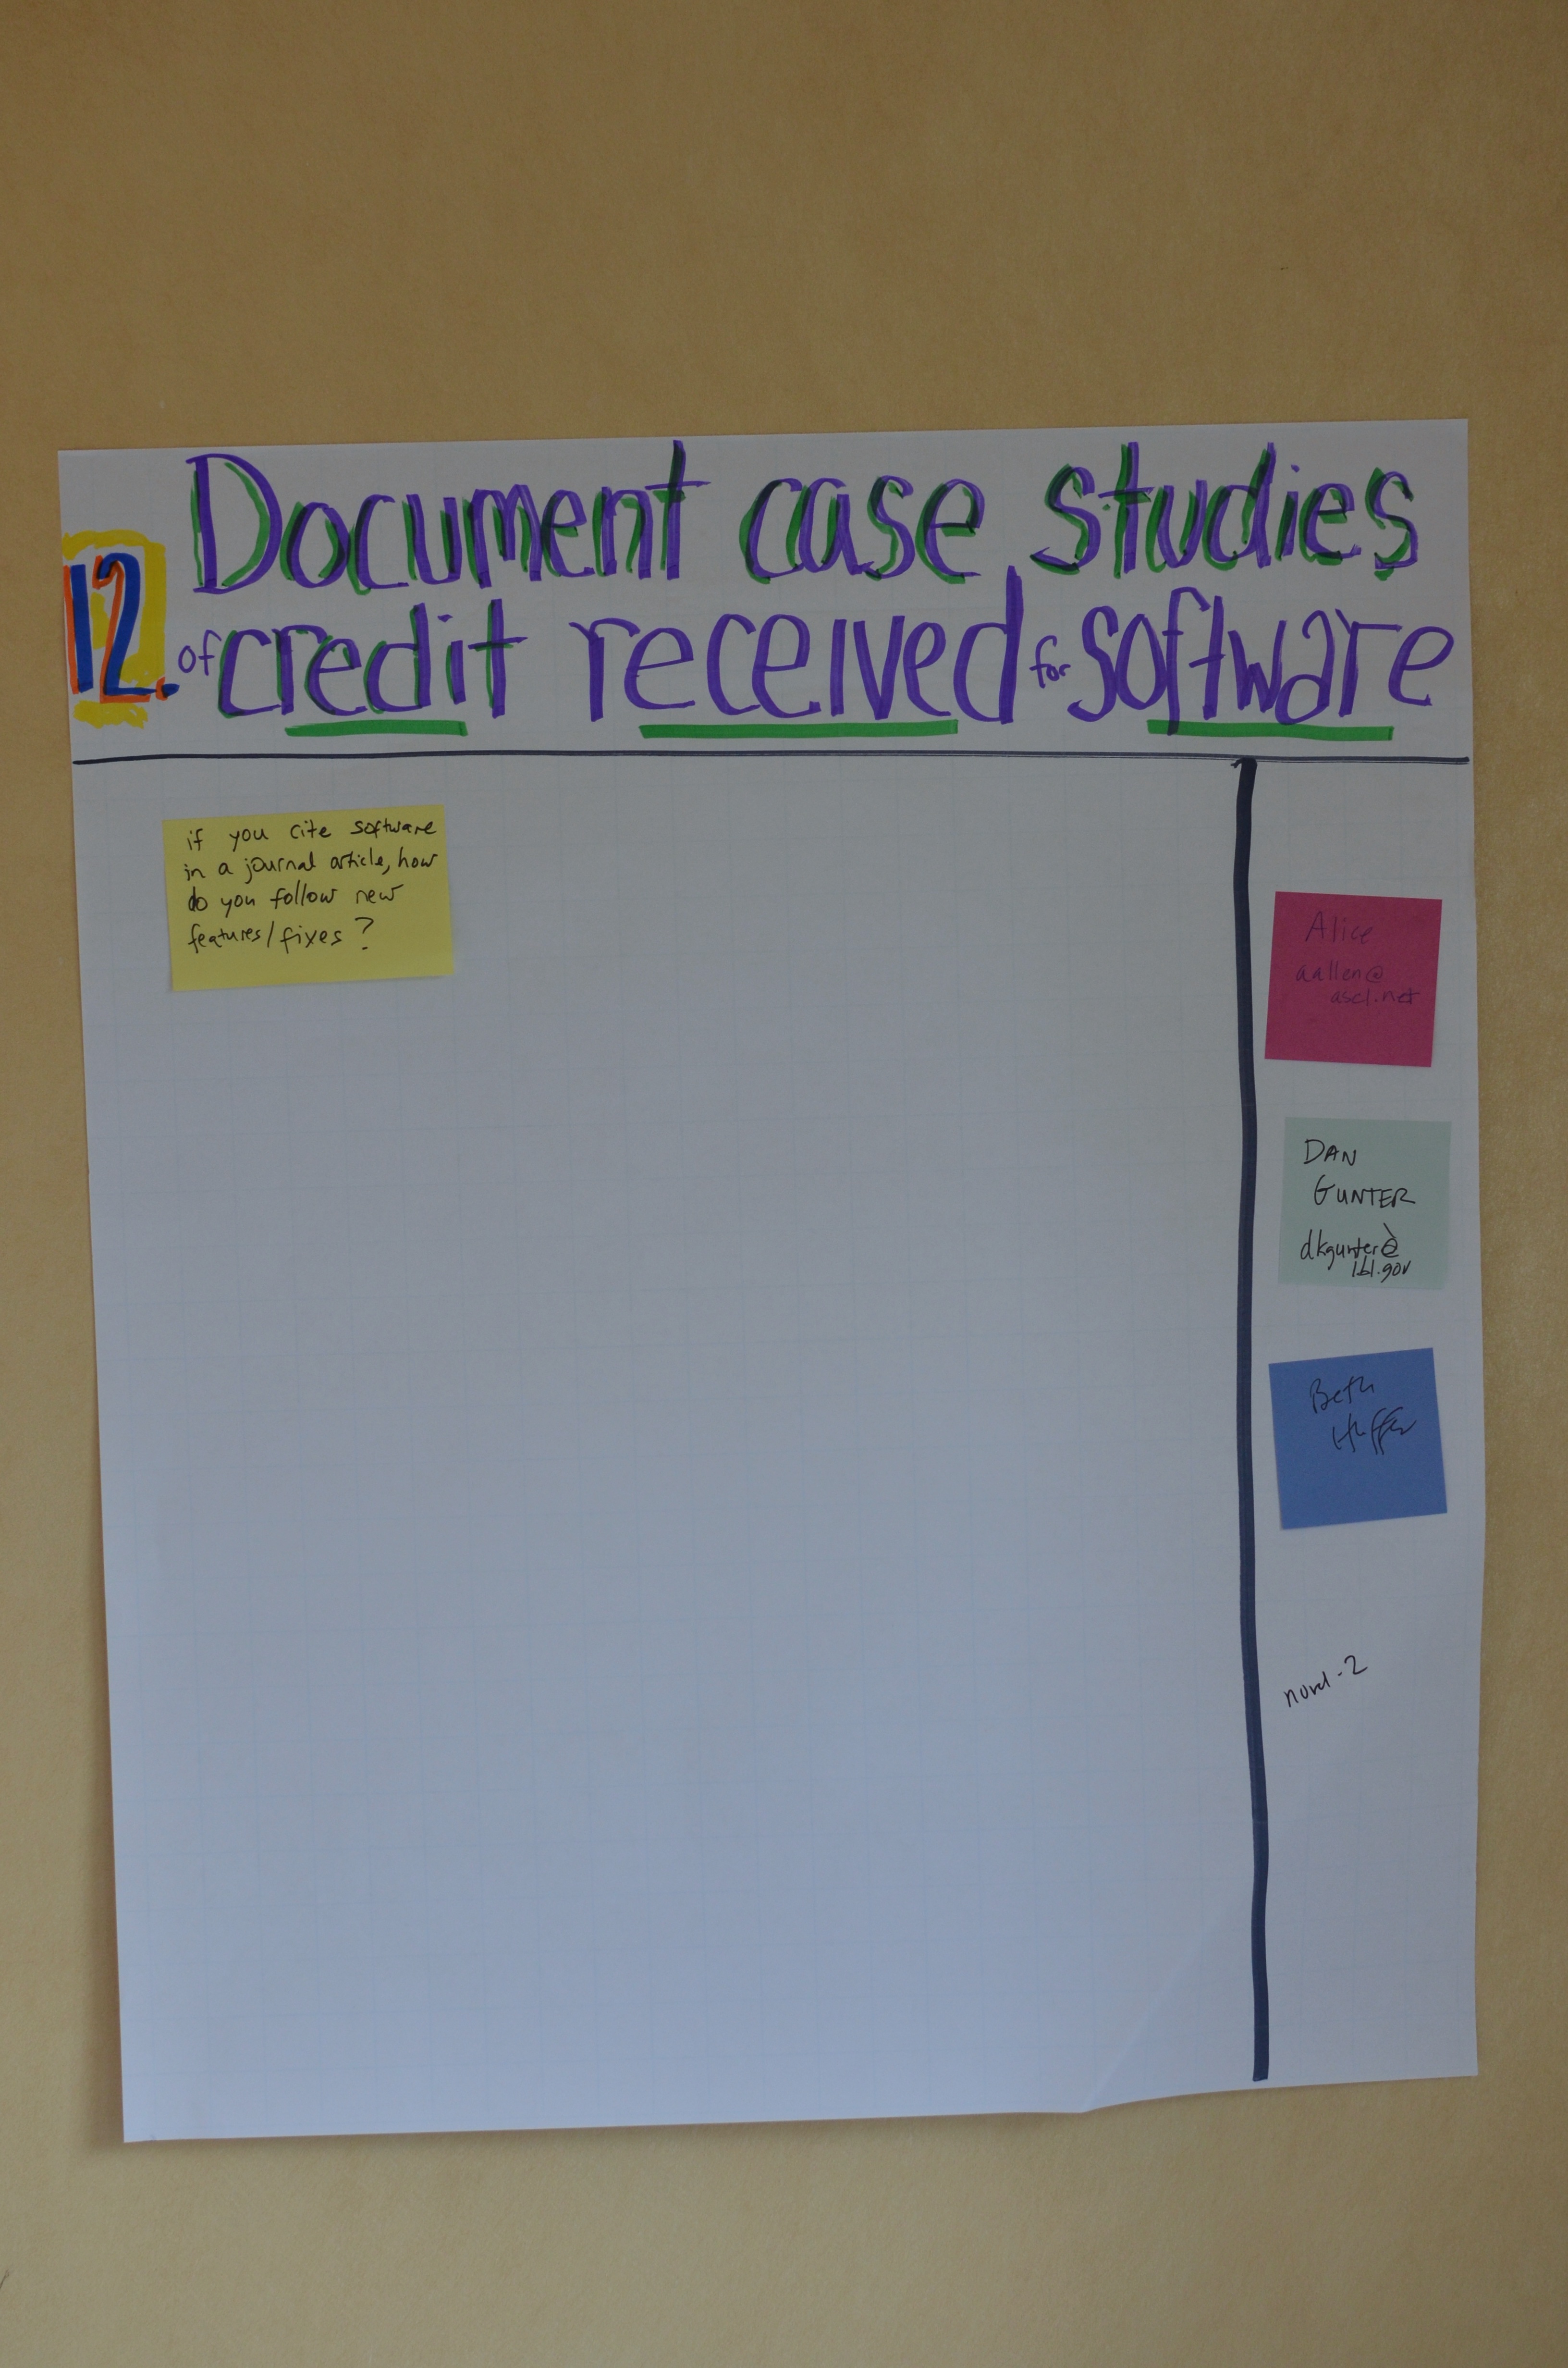 12. Document case studies
of credit received for software
if you cite software
in a journal article, how
do you follow new
features/fixes?
Alice
aallen@
ascl.net
DAN
GUNTER
dkgunter@
lbl.gov
Beth
Huffer
-2